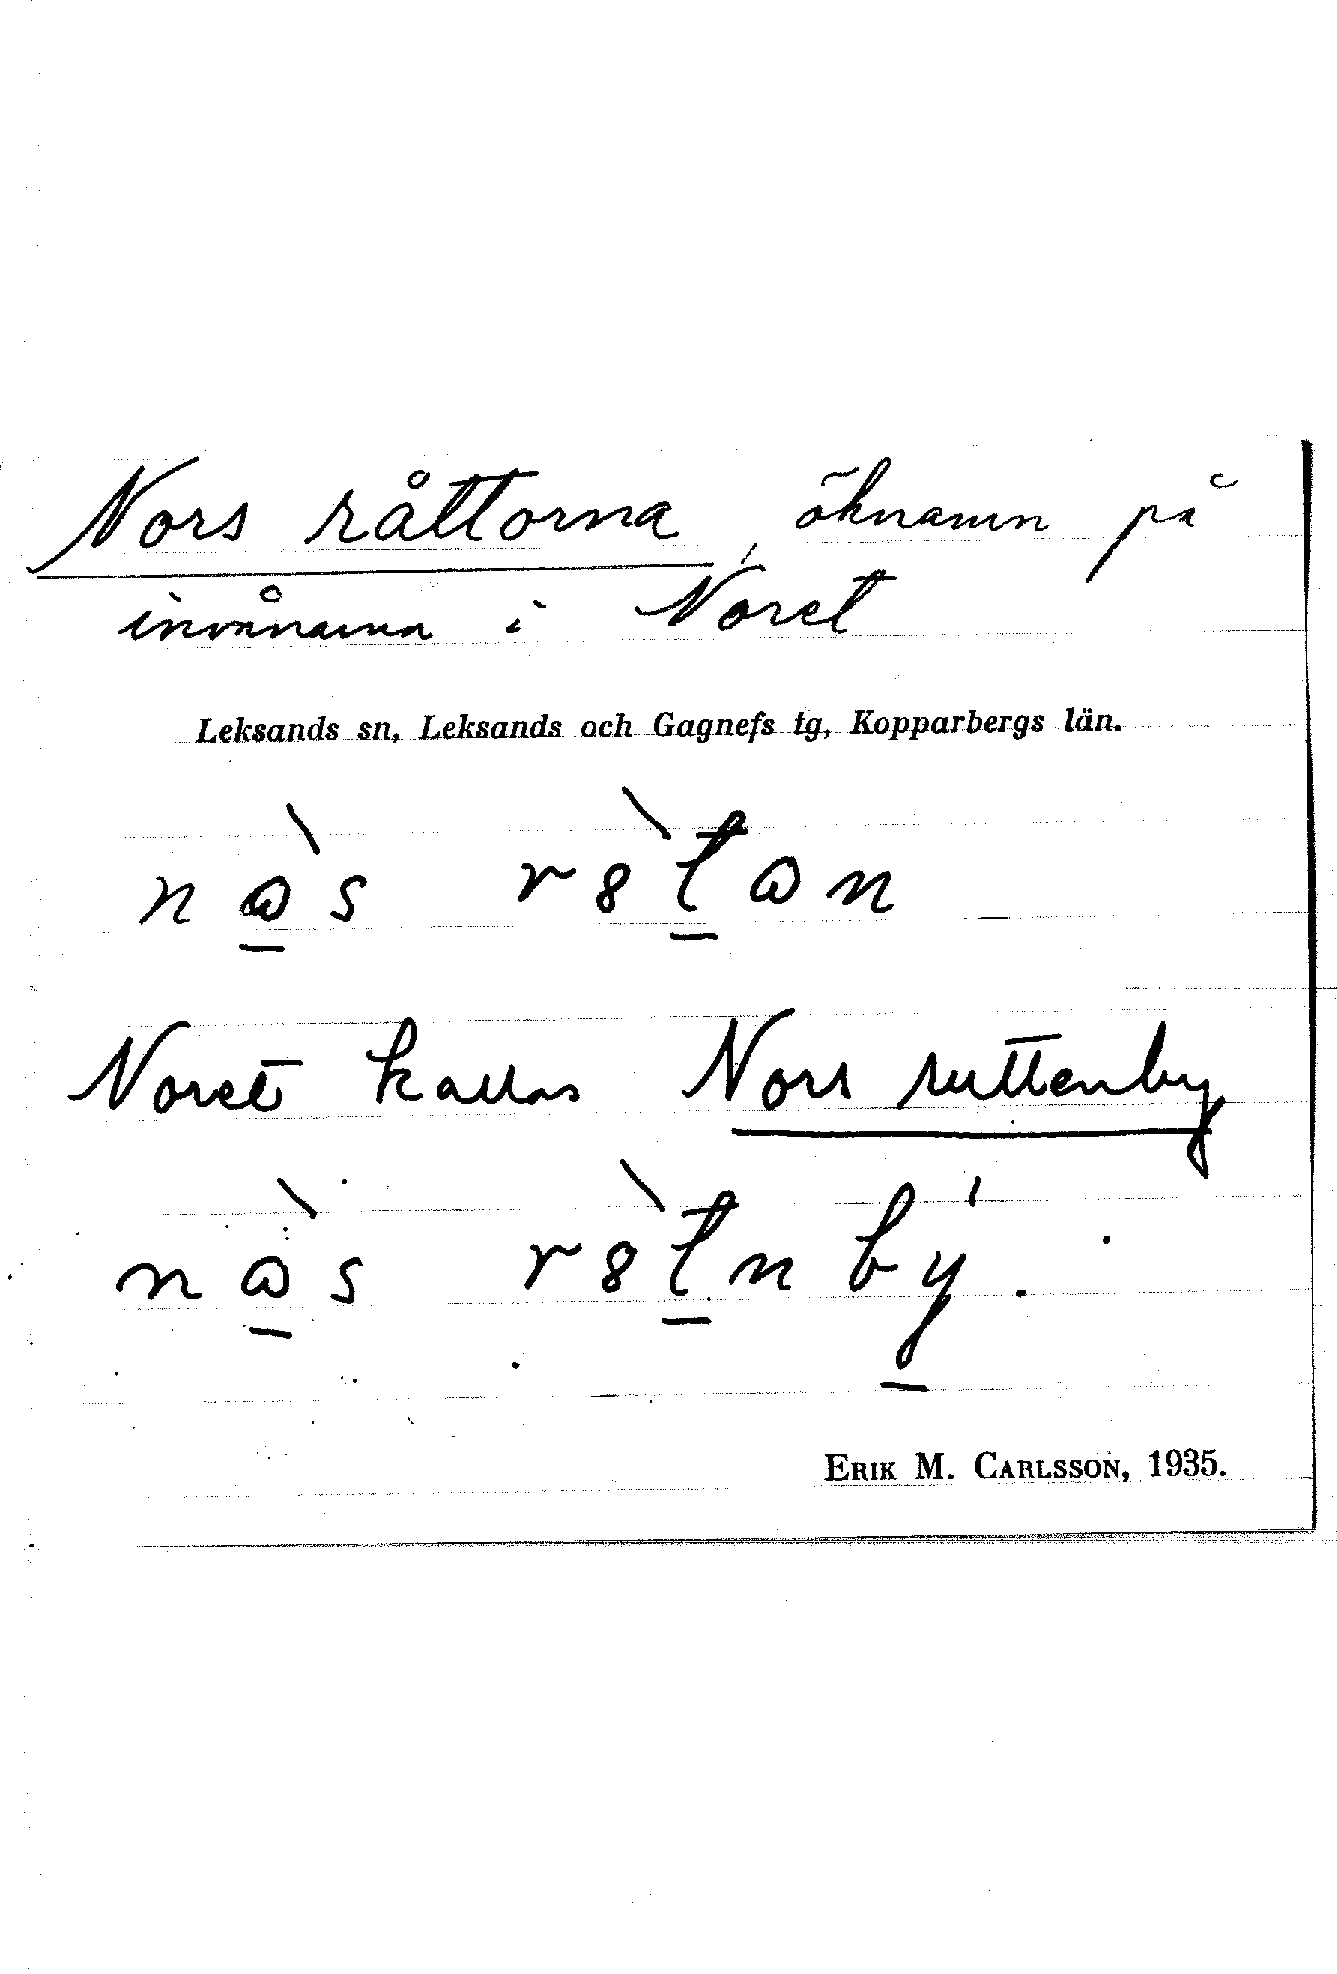 Nors råttorna, öknamn på
invånarna i Noret
Leksands sn, Leksands och Gagnefs tg, Kopparbergs län.
Noret kallas Nors ruttenby
ERIK M. CARLSSON, 1935.